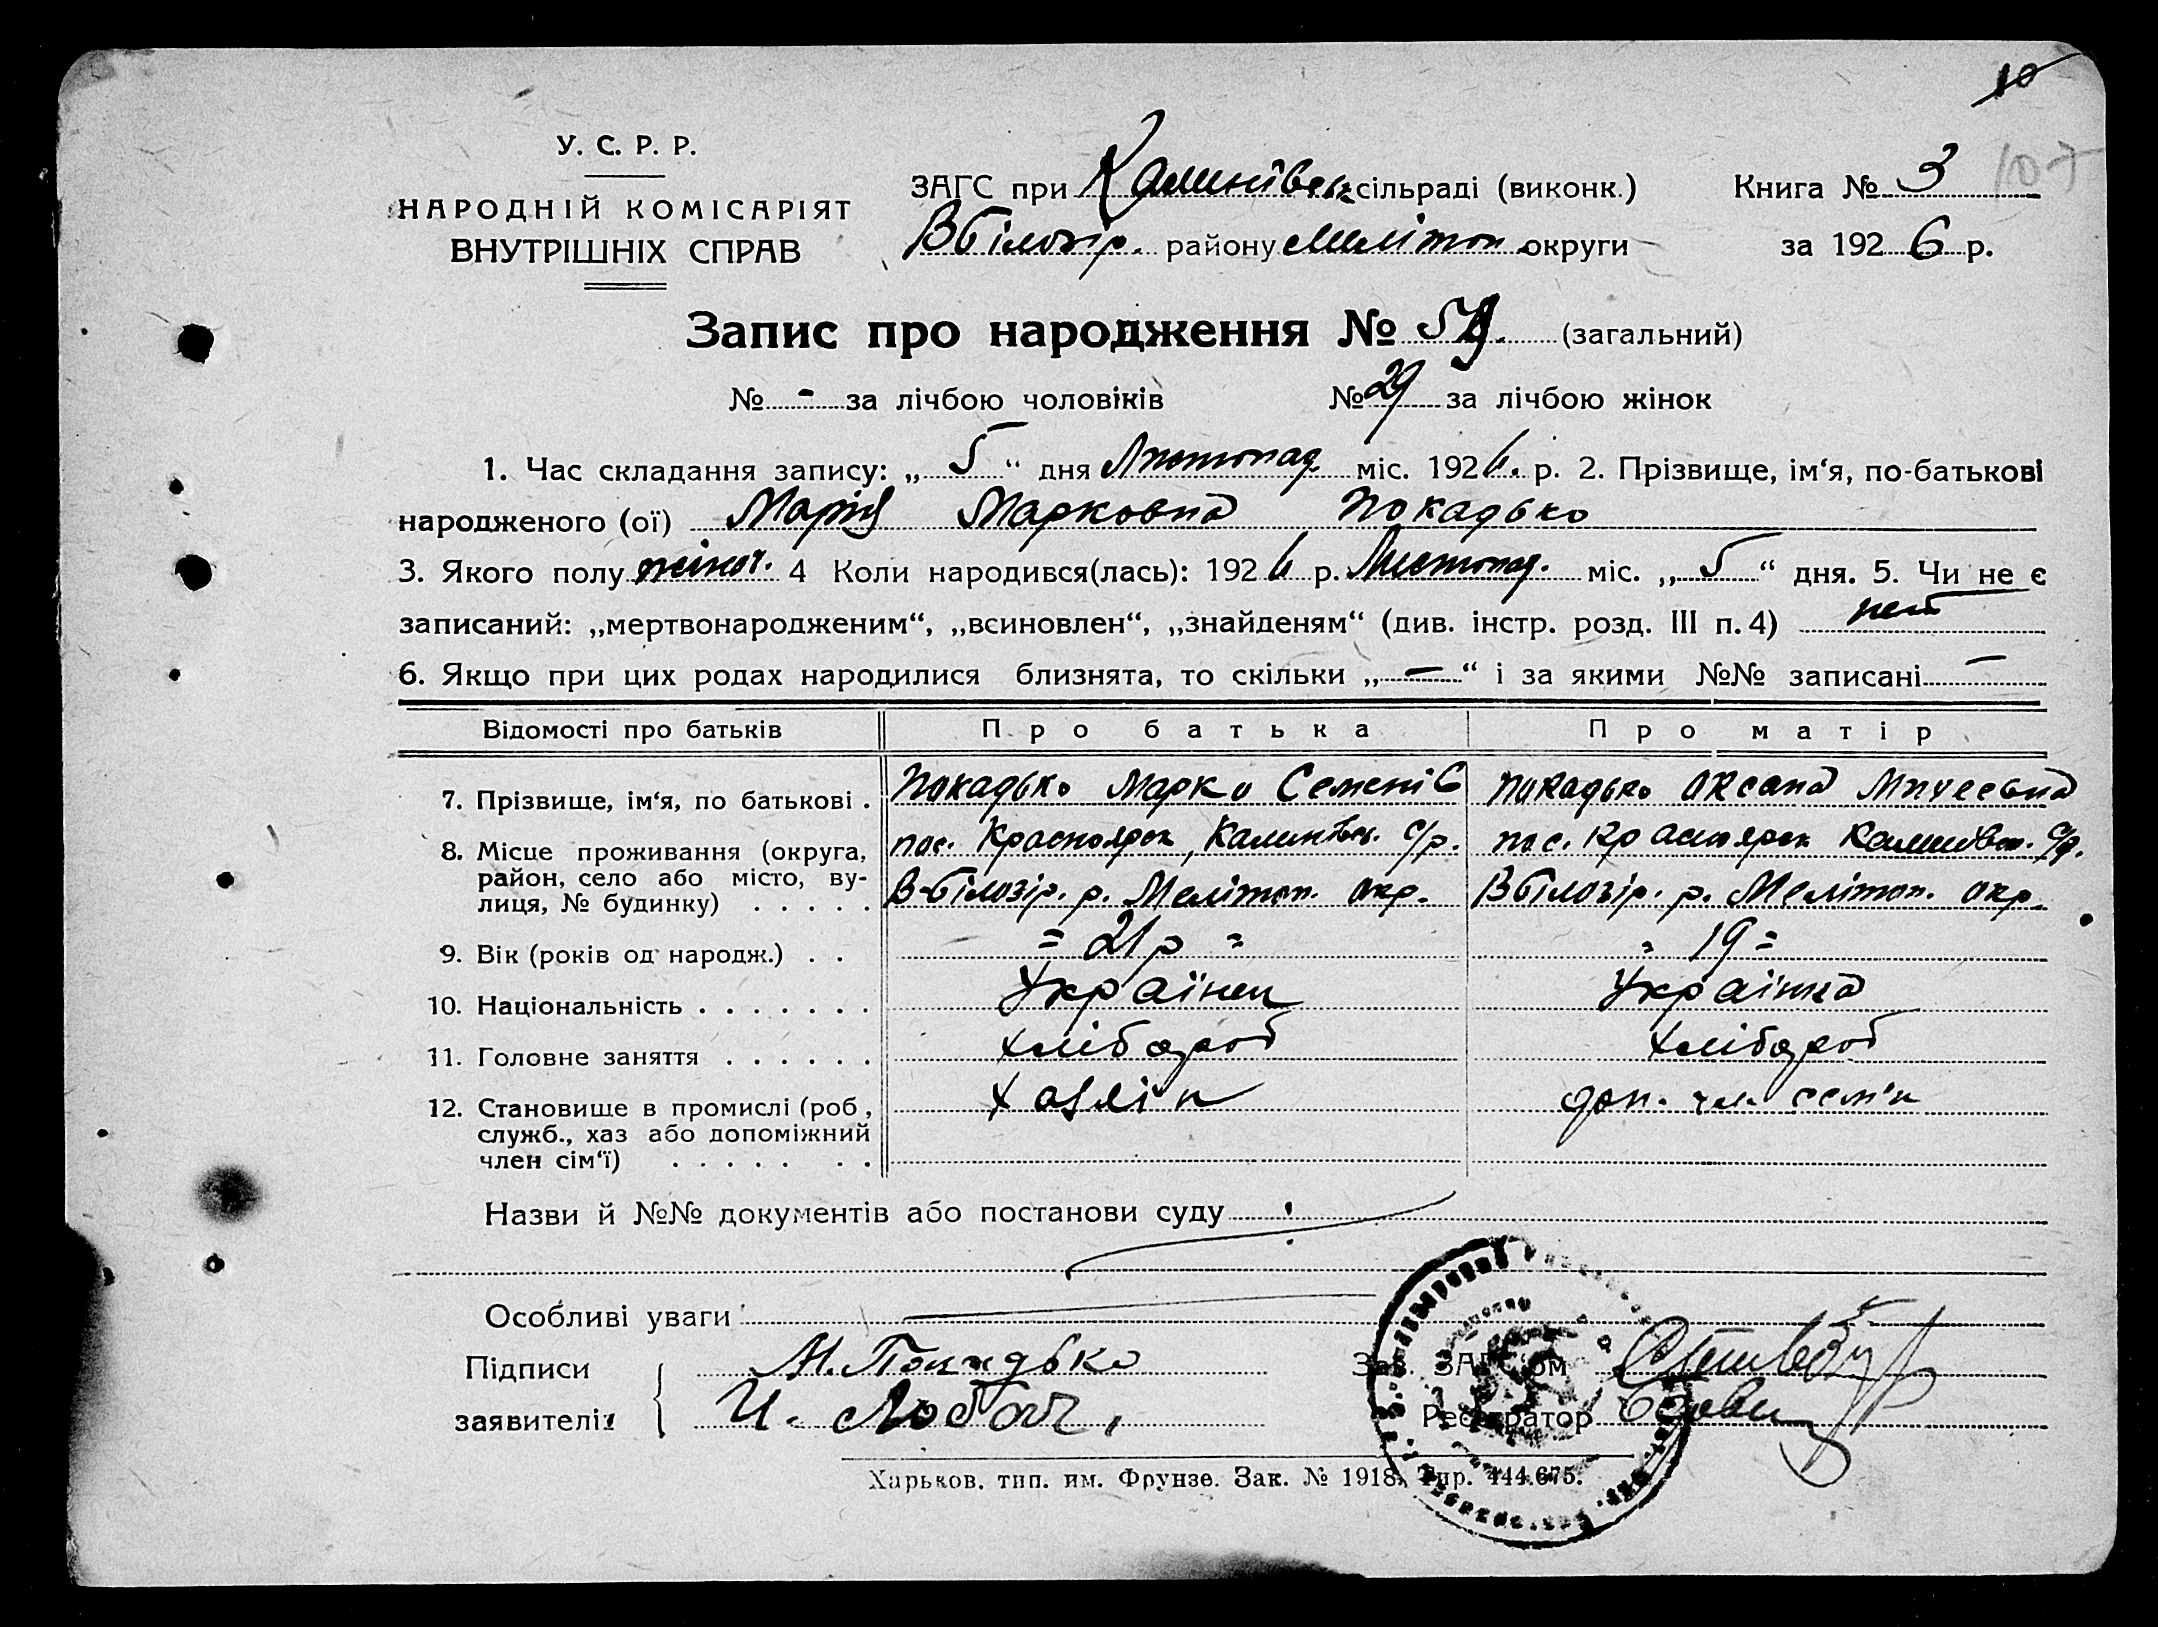 10
У. С. Р. Р.
НАРОДНІЙ КОМІСАРІЯТ
ВНУТРІШНІХ СПРАВ
ЗАГС при Калинівськ сільраді (виконк.)
В Білозір. району Мелітоп округи
Книга № 3
107
за 1926 р.
Запис про народження № (загальний)
№ - за лічбою чоловіків № 29 за лічбою жінок
1. Час складання запису: „ 5 “ дня Листопад міс. 1926. р. 2. Прізвище, ім‘я, по-батькові
народженого (ої) Марія Марковна Покадько
3. Якого полу жіноч. 4 Коли народився(лась): 1926 р. Листопад. міс. „ 5 “ дня. 5. Чи не є
записаний: „мертвонародженим“, „всиновлен“, „знайденям“ (див. інстр. розд. III п. 4) нет
6. Якщо при цих родах народилися близнята, то скільки „ — “ і за якими №№ записані —
Відомості про батьків Про батька Про матір
7. Прізвище, ім‘я, по батькові . Покадько Марко Семенів Покадько Оксана
8. Місце проживання (округа, район, село або місто, вулиця, № будинку) . . . . .
пос. Красноярск, Калинівськ. с/р. пос. Красноярск Калинівськ. с/р.
В-Білозір. р. Мелітоп. окр. В Білозір. р. Мелітоп. окр.
9. Вік (років од народж.) . . = 21 р = " 19 =
10. Національність . . . . . . . Українец Українка
11. Головне заняття . . . . . . Хлібороб Хлібороб
12. Становище в промислі (роб, служб., хаз або допоміжний член сім‘ї) . . . . . . .
Хазяін доп. чл. семʼи
Назви й №№ документів або постанови суду
Особливі уваги
Підписи заявителів
М. Покадько
И. Лобач,
Зав. ЗАГС‘ом
Реєстратор
Харьков. тип. им. Фрунзе. Зак. № 1918. Тир. 444.675.